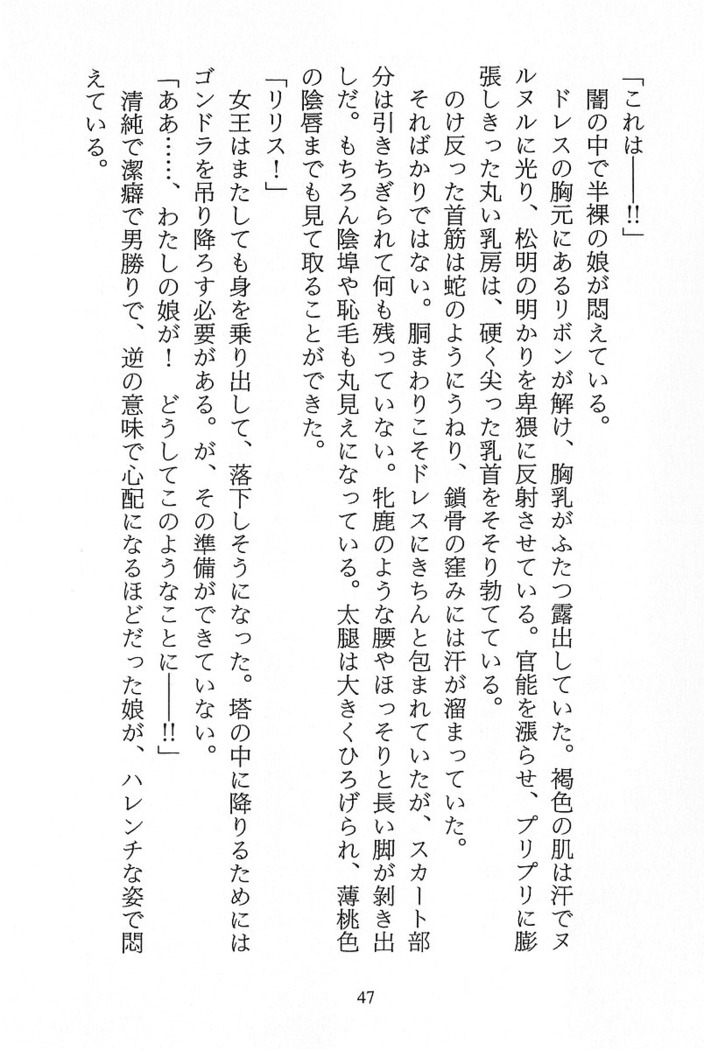 「これは――!!」
闇の中で半裸の娘が悶えている。
ドレスの胸元にあるリボンが解け、胸乳がふたつ露出していた。褐色の肌は汗でヌ
ルヌルに光り、松明の明かりを卑猥に反射させている。官能を漲らせ、プリプリに膨
張しきった丸い乳房は、硬く尖った乳首をそそり勃てている。
のけ反った首筋は蛇のようにうねり、鎖骨の窪みには汗が溜まっていた。
そればかりではない。胴まわりこそドレスにきちんと包まれていたが、スカート部
分は引きちぎられて何も残っていない。牝鹿のような腰やほっそりと長い脚が剝き出
しだ。もちろん陰埠や恥毛も丸見えになっている。太腿は大きくひろげられ、薄桃色
の陰唇までも見て取ることができた。
「リリス！」
女王はまたしても身を乗り出して、落下しそうになった。塔の中に降りるためには
ゴンドラを吊り降ろす必要がある。が、その準備ができていない。
「ああ……、わたしの娘が！　どうしてこのようなことに――!!」
清純で潔癖で男勝りで、逆の意味で心配になるほどだった娘が、ハレンチな姿で悶
えている。
47